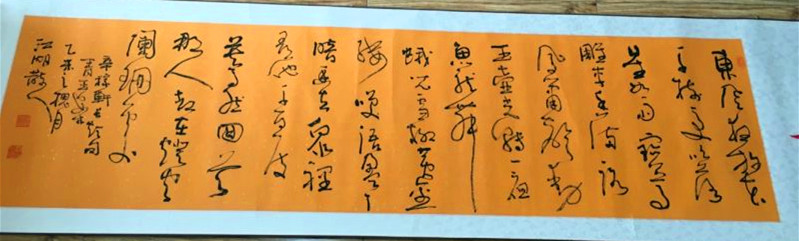 東風夜放花
千樹更吹落
星如雨寶馬
雕車香滿路
鳳簫聲動
玉壺光轉一夜
魚龍舞
蛾兒雪柳黃金
縷笑語盈盈
暗香去眾裡
尋他千百度
驀然回首
那人卻在燈火
闌珊處
辛稼軒長短句
青玉案
乙未之槐月
江湖散人